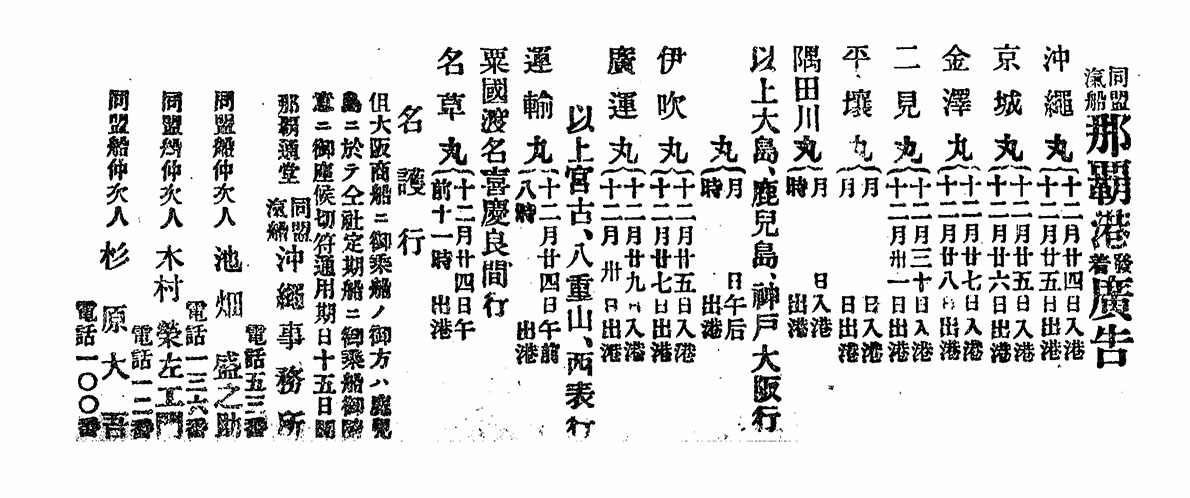 同盟汽船那覇港發着廣告
沖繩丸 十二月廿四日入港 十二月廿五日出港
京城丸 十二月廿五日入港 十二月廿六日出港
金澤丸 十二月廿七日入港 十二月廿八日出港
二見丸 十二月三十日入港 十二月卅一日出港
平壤丸 月 日入港 月 日出港
隅田川丸 月 日入港 時 出港
丸 月 日午后 時 出港
以上大島、鹿兒島、神戸大阪行
伊吹丸 十二月廿五日入港 十二月廿七日出港
廣運丸 十二月廿九日入港 十二月卅日出港
以上宮古、八重山、西表行
運輸丸 十二月廿四日午前八時 出港
粟國渡名喜慶良間行
名草丸 十二月廿四日午前十一時 出港
名護行
但大阪商船ニ御乘船ノ御方ハ鹿兒
島ニ於テ仝社定期船ニ御乘船御隨
意ニ御座候切符通用期日十五日間
那覇通堂 同盟汽船 沖繩事務所
電話五三番
同盟船仲次人 池畑盛之助
電話一三六番
同盟船仲次人 木村榮左工門
電話一二番
同盟船仲次人 杉原大吾
電話一〇〇番